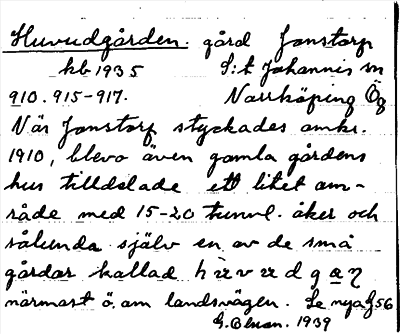 Huvudgården. gård Jonstorp
kb 1935 S:t Johannis sn
910. 915-917. Norrköping Ög
När Jonstorp styckades omkr.
1910, blevo även gamla gårdens
hus tilldelade ett litet om-
råde med 15-20 tunnl. åker och
sålunda själv en av de små
gårdar kallad
närmast ö. om landsvägen. Se nya J 56
1939